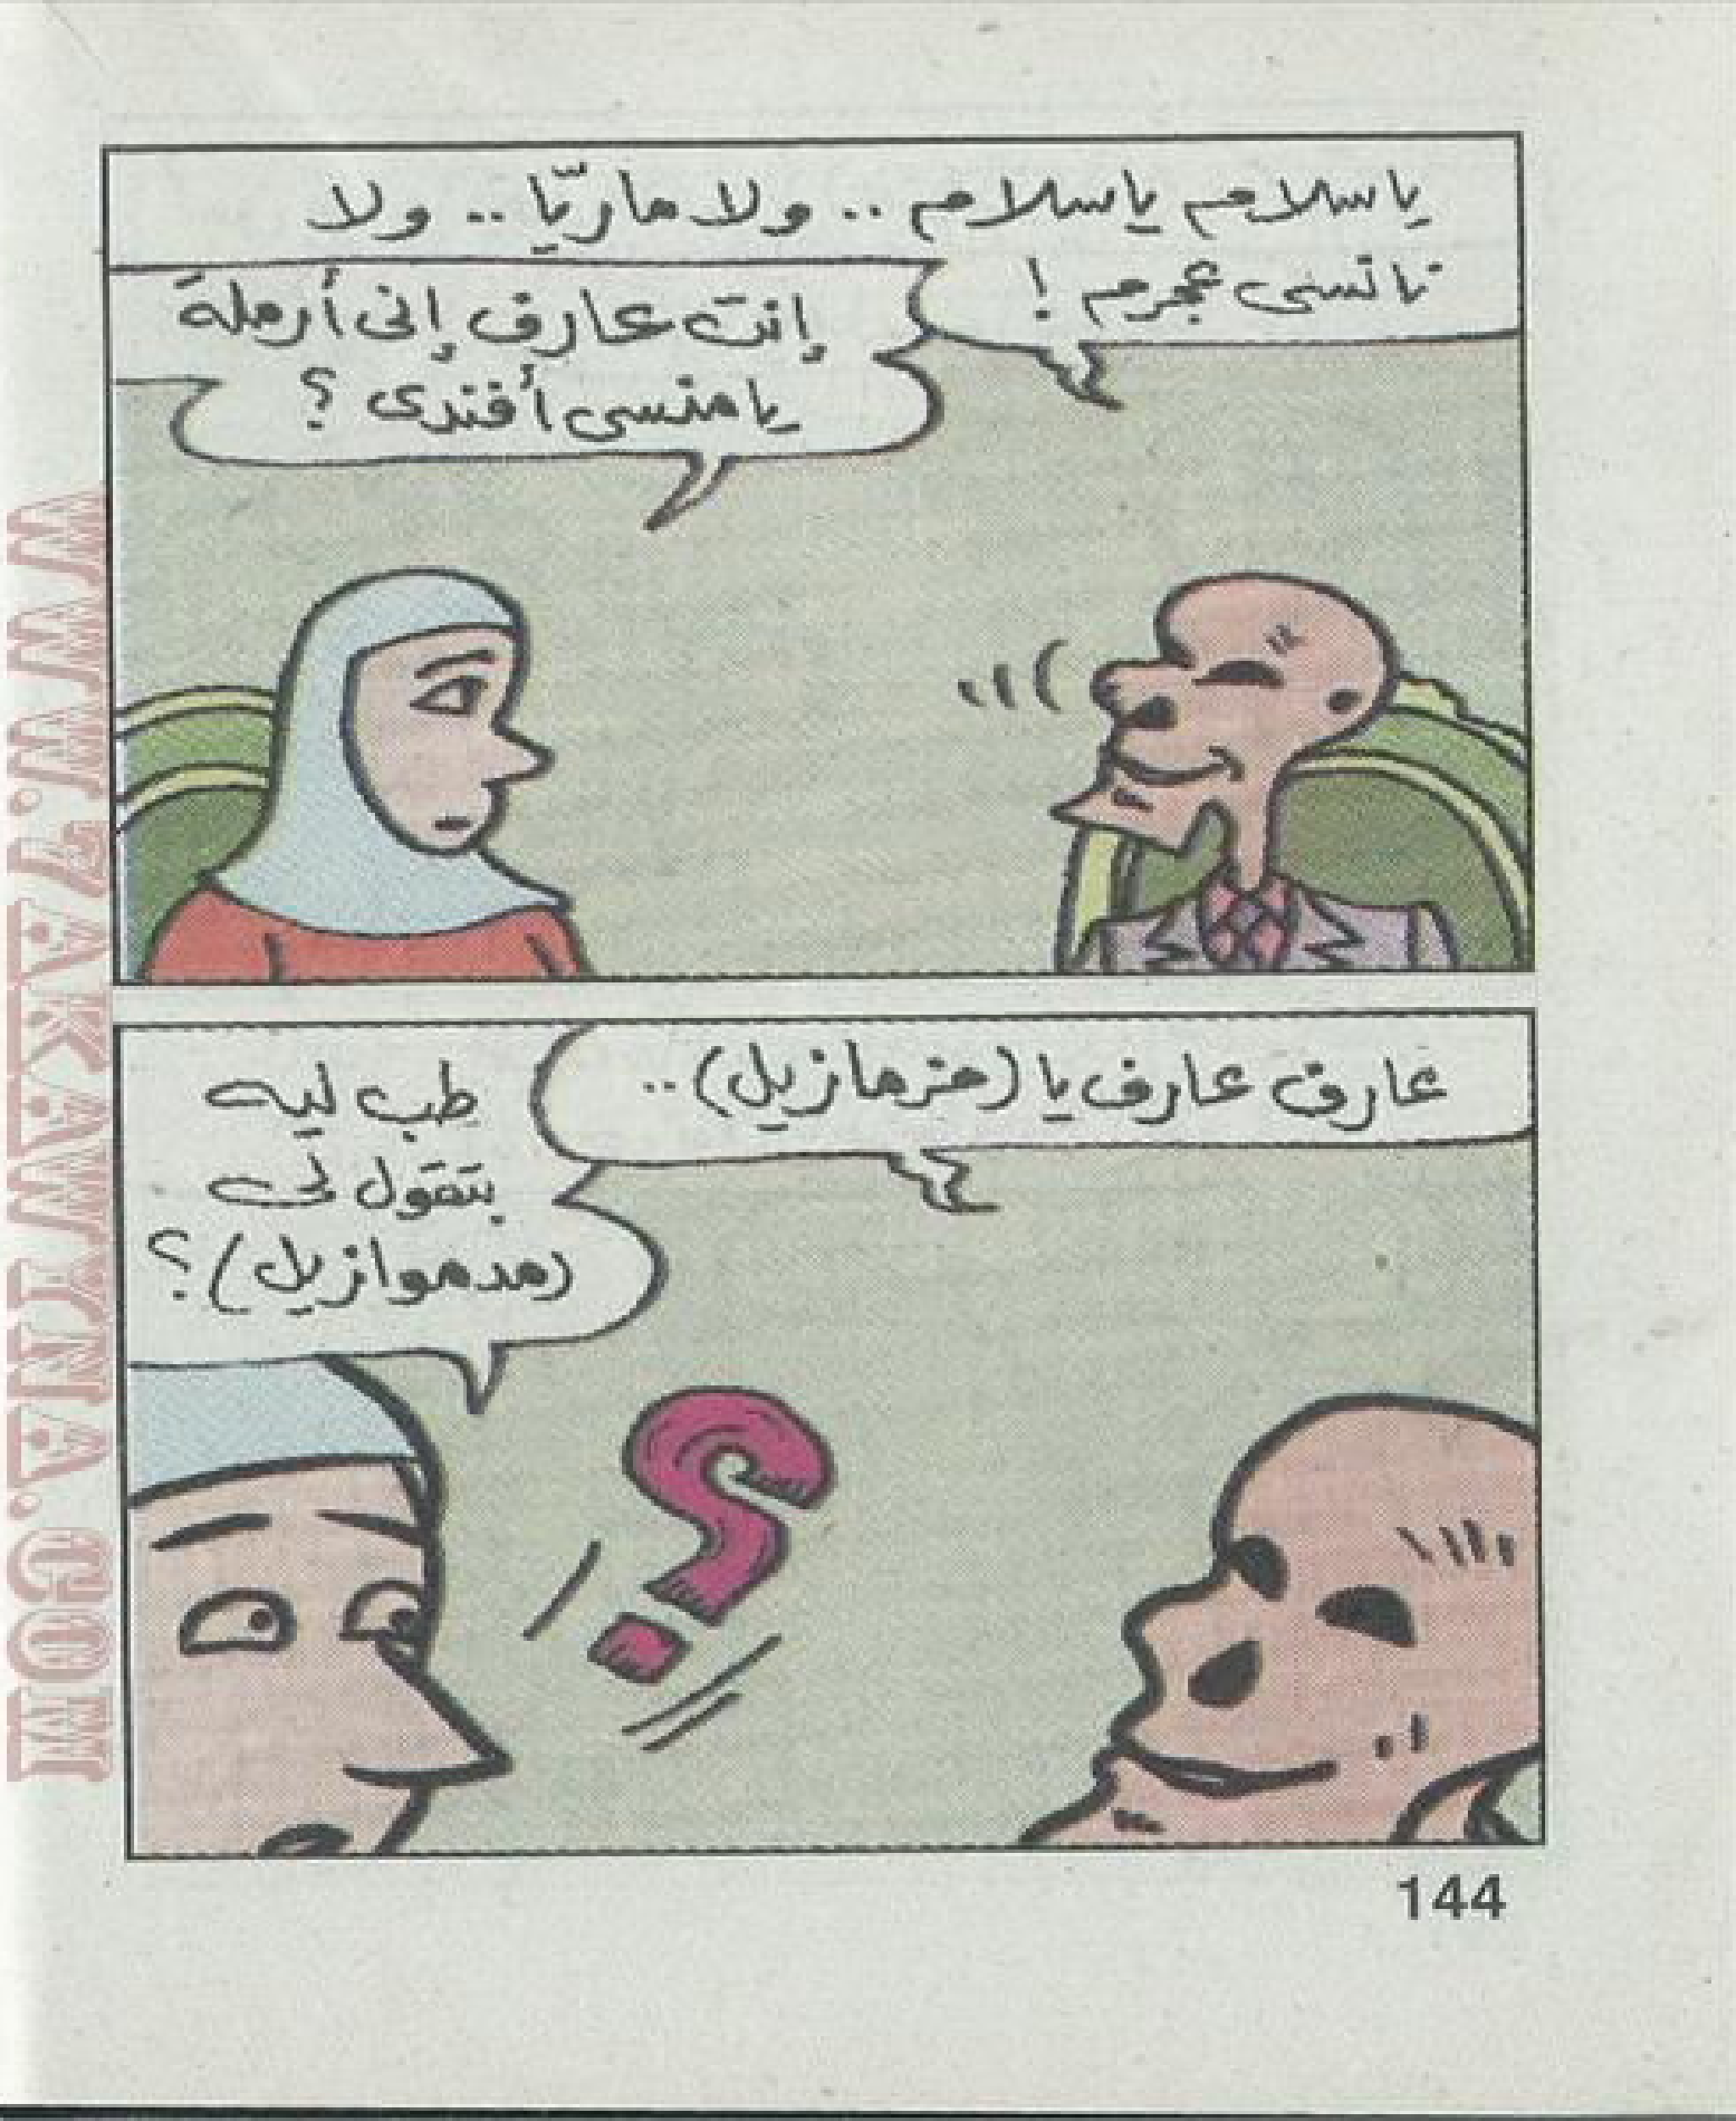 ياسلام ياسلام .. ولا ماريّا .. ولا
نانسى عجرم !
إنت عارف إنى أرملة
يا منسى أفندى ؟
عارف عارف يا (مزمازيل) ..
طب ليه
بتقول لى
(مدموازيل) ؟
144
WWW.7AKAWINA.COM